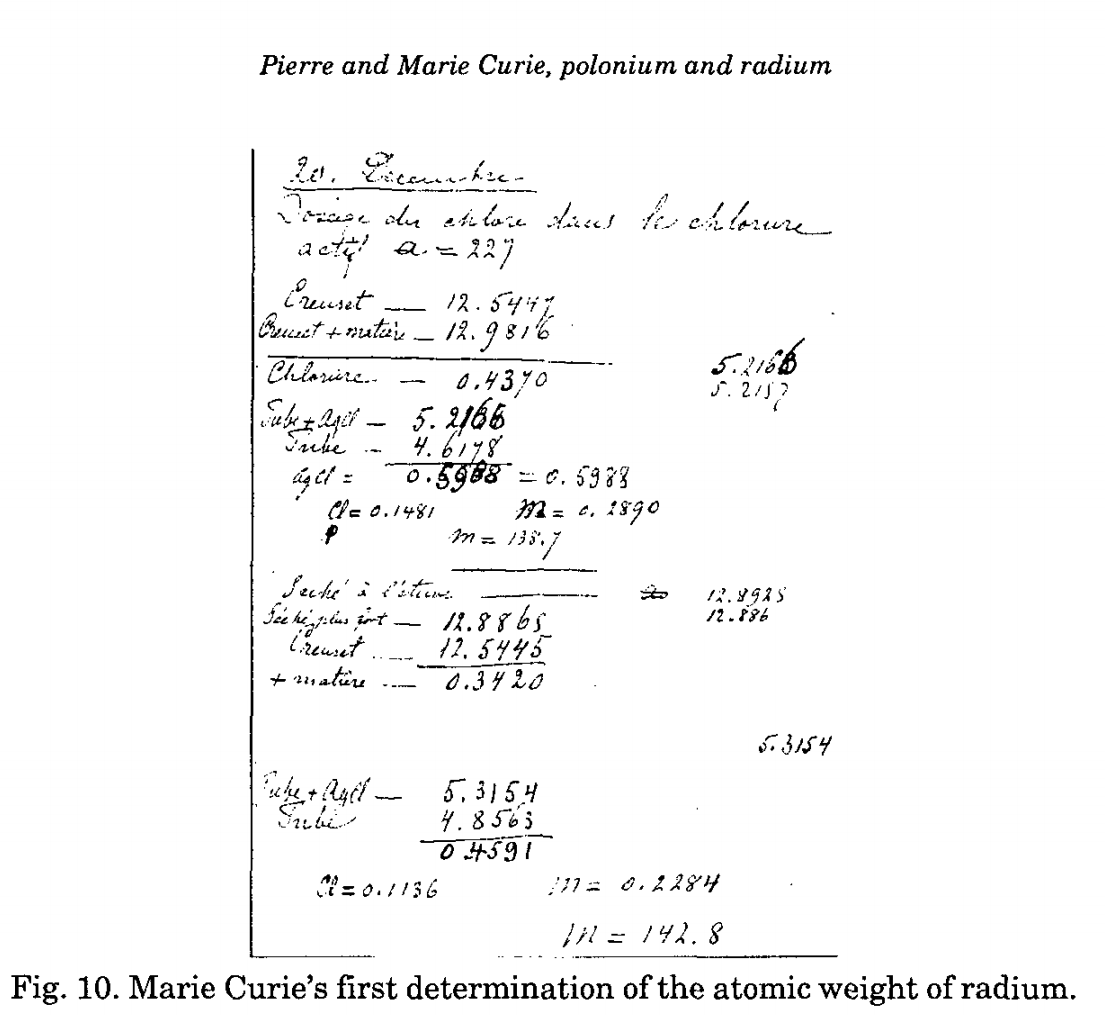 Pierre and Marie Curie, polonium and radium
20. Décembre
Dosage du chlore dans le chlorure
actif a = 227
Creuset — 12.5447
Creuset + matière — 12.9816
Chlorure — 0.4370
5.2166
5.2157
Tube + AgCl — 5.2166
Tube — 4.6178
AgCl = 0.5988 = 0.5988
Cl = 0.1481 M = 0.2890
m = 138.7
Séché à l'étuve — 12.8925
12.886
Séché plus fort — 12.8865
Creuset — 12.5445
+ matière — 0.3420
5.3154
Tube + AgCl — 5.3154
Tube 4.8563
0.4591
Cl = 0.1136 m = 0.2284
m = 142.8
Fig. 10. Marie Curie's first determination of the atomic weight of radium.